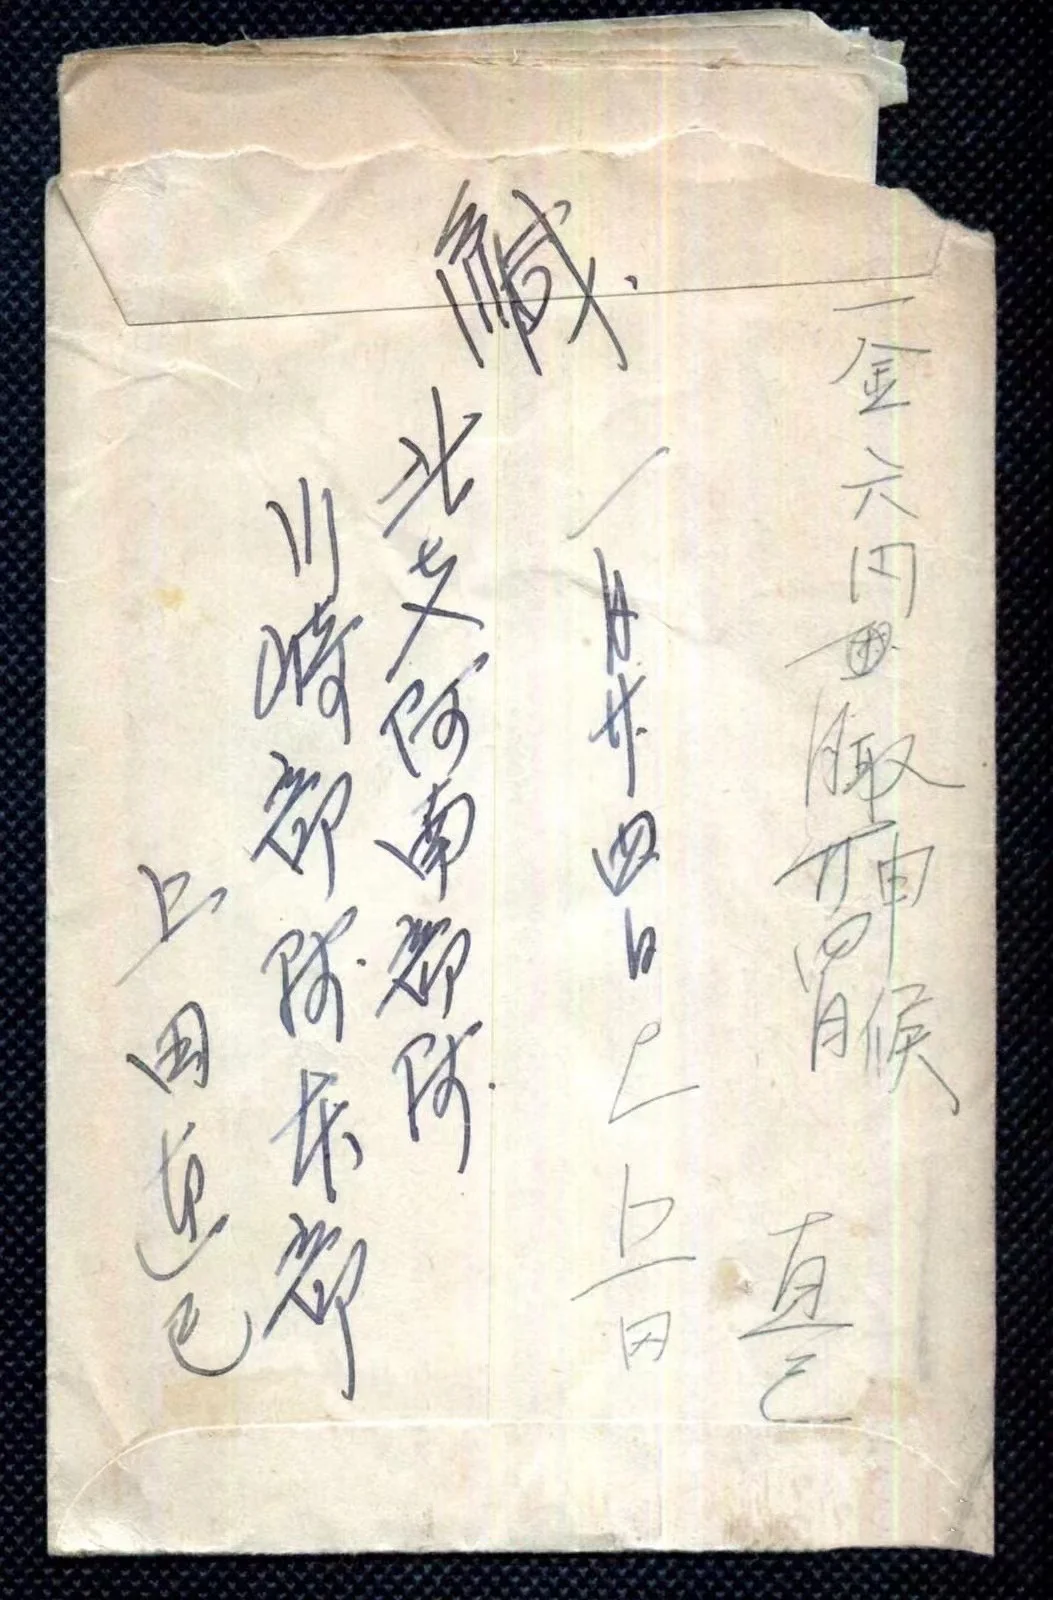 一金六円也
申候
直己
緘
一月廿四日
上田
北支河南部隊
川崎部隊本部
上田直己